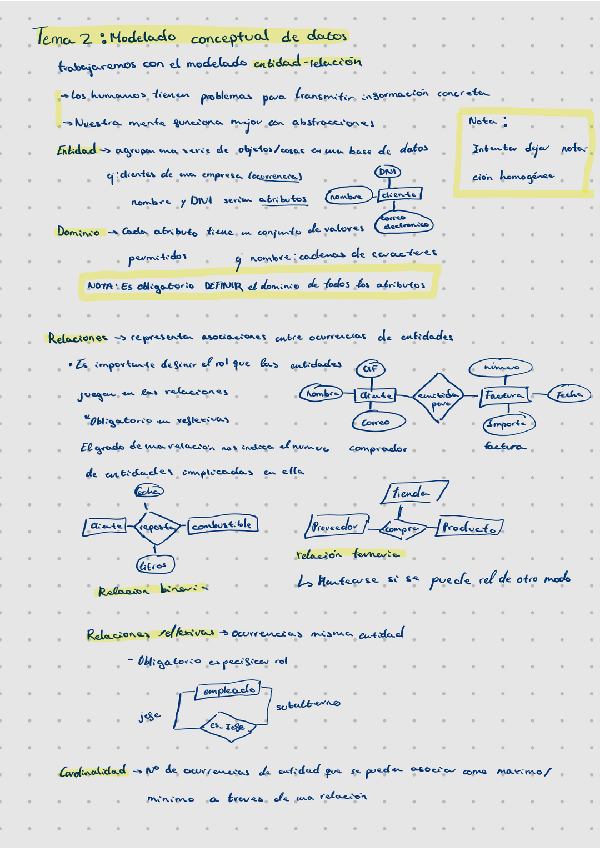 Tema 2: Modelado conceptual de datos
trabajaremos con el modelado entidad-relación
→ Los humanos tienen problemas para transmitir información concreta
→ Nuestra mente funciona mejor con abstracciones
Nota:
Intentar dejar nota
ción homogénea
Entidad → agrupan una serie de objetos/cosas en una base de datos
ej: clientes de una empresa (ocurrencias)
nombre y DNI serían atributos
DNI
nombre
cliente
correo electronico
Dominio → Cada atributo tiene un conjunto de valores
permitidos ej nombre: cadenas de caracteres
NOTA: Es obligatorio DEFINIR el dominio de todos los atributos
Relaciones → representan asociaciones entre ocurrencias de entidades
• Es importante definir el rol que las entidades
juegan en las relaciones
*Obligatorio en reflexivas
CIF
número
nombre
cliente
emitida para
Factura
Fecha
correo
Importe
comprador
factura
El grado de una relacion nos indica el numero
de entidades implicadas en ella
fecha
cliente
reposta
combustible
litros
Relacion binaria
tienda
Proveedor
compra
Producto
relación ternaria
↳ Mantearse si se puede rel de otro modo
Relaciones reflexivas → ocurrencias misma entidad
- Obligatorio especificar rol
empleado
jefe
subalterno
es jefe
Cardinalidad → Nº de ocurrencias de entidad que se pueden asociar como maximo/
minimo a traves de una relación